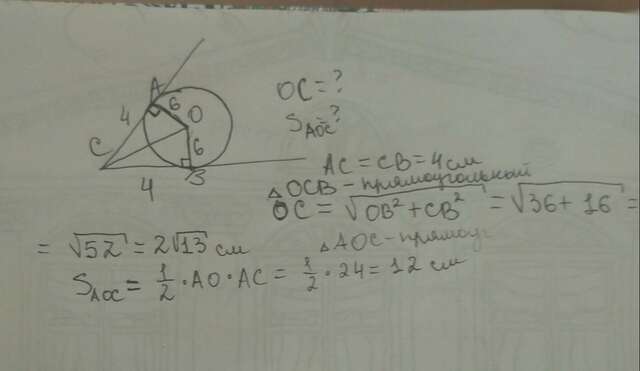 A
4
6
O
6
C
4
B
OC = ?
S_AOC = ?
AC = CB = 4 см
△ OCB - прямоугольный
OC = √(OB² + CB²) = √(36 + 16) =
= √52 = 2√13 см
△ AOC - прямоуг
S_AOC = 1/2 · AO · AC = 1/2 · 24 = 12 см